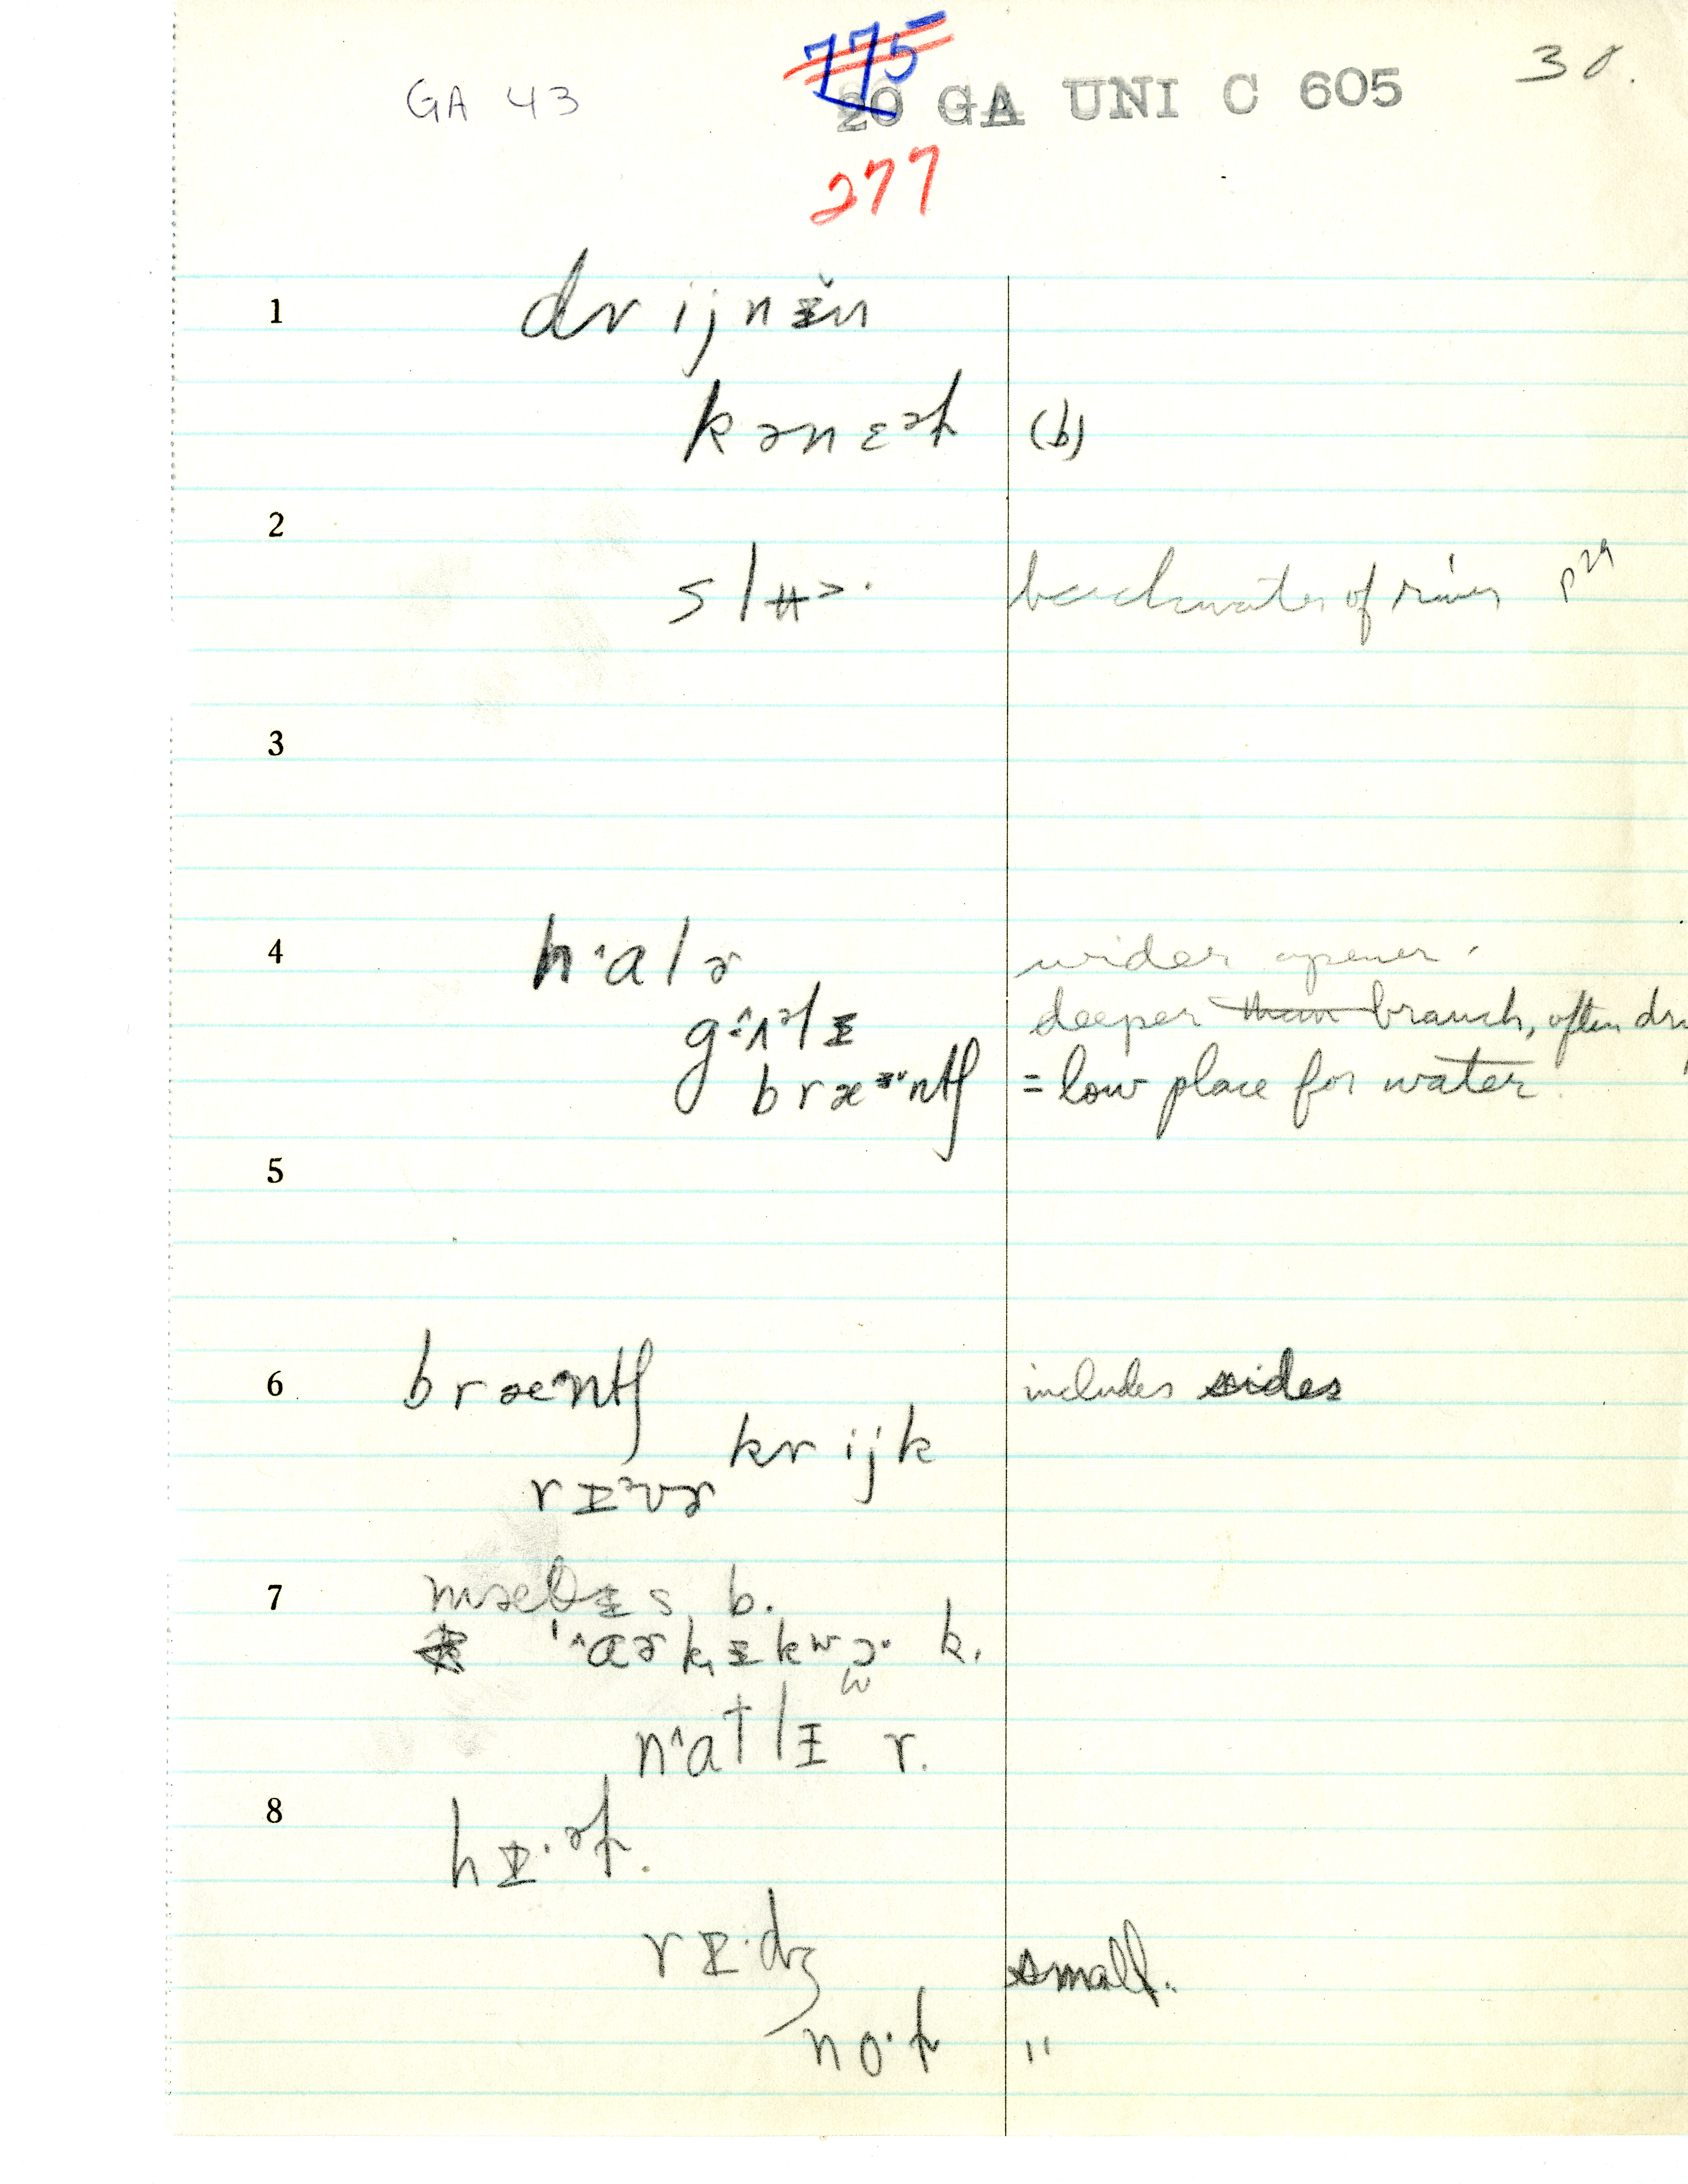 GA 43
775
20 GA UNI C 605
30.
277
1
drijnɪ̆n
kənɛəl (b)
2
slʉɔ· backwater of river p29
3
4 hᶺalɚ wider opener.
gᶺʌlɪ deeper than branch, often dry
bræᶦntʃ = low place for water.
5
6 bræntʃ includes sides
krijk
rɪᵊvɚ
7 mæθɪs b.
k.
r.
8 hɪ·əl.
rɪ·dʒ small.
"